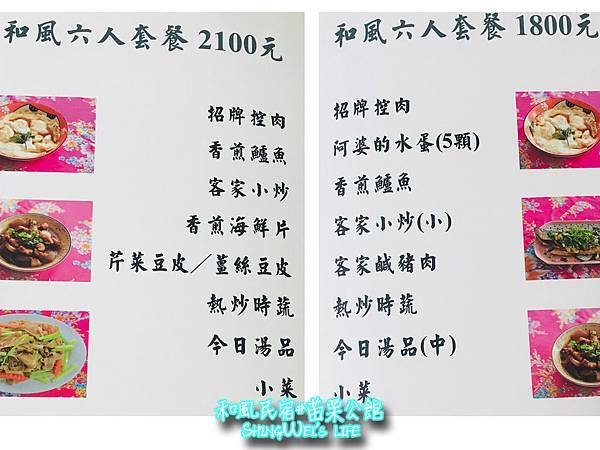 和風六人套餐 2100元
招牌控肉
香煎鱸魚
客家小炒
香煎海鮮片
芹菜豆皮／薑絲豆皮
熱炒時蔬
今日湯品
小菜
和風六人套餐 1800元
招牌控肉
阿婆的水蛋(5顆)
香煎鱸魚
客家小炒(小)
客家鹹豬肉
熱炒時蔬
今日湯品(中)
小菜
和風民宿#苗栗公館
SHINGWEI'S LIFE